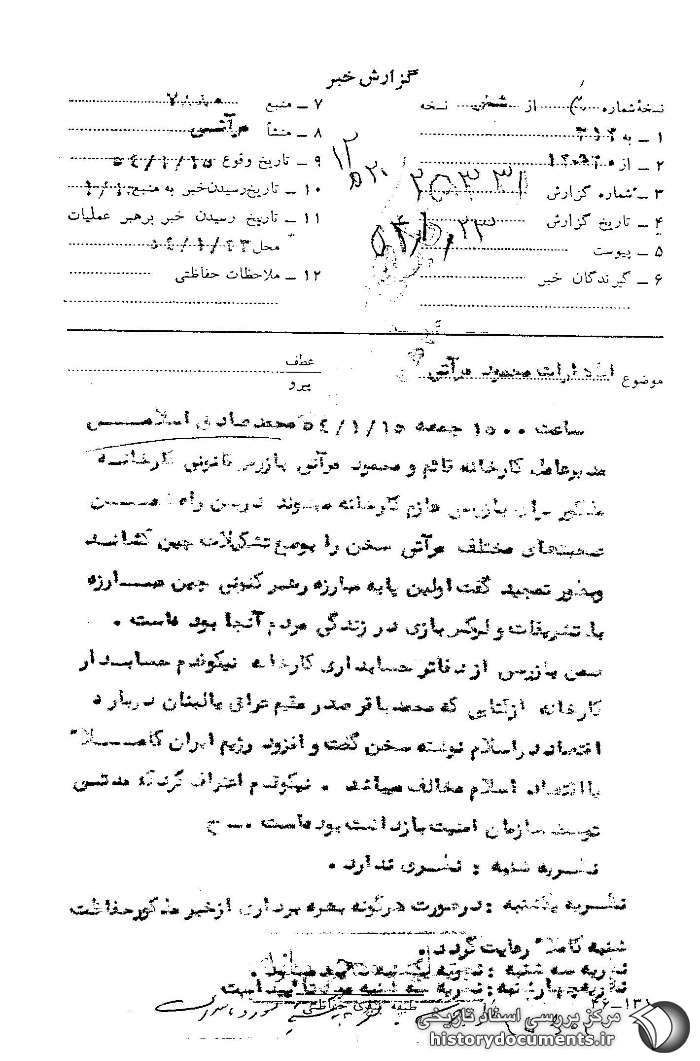 گزارش خبر
نسخهٔ شماره از نسخه
۱ ـ به ۳۱۲
۲ ـ از
۳ ـ شماره گزارش
۴ ـ تاریخ گزارش
۵ ـ پیوست
۶ ـ گیرندگان خبر
۷ ـ منبع
۸ ـ منشأ مرآتی
۹ ـ تاریخ وقوع ۵٤/۱/۱۵
۱۰ ـ تاریخ رسیدن خبر به منبع
۱۱ ـ تاریخ رسیدن خبر برهبر عملیات
محل ۵٤/۱/۲۳
۱۲ ـ ملاحظات حفاظتی
موضوع اظهارات محمود مرآتی
عطف
پیرو
ساعت ۱۵۰۰ جمعه ۵٤/۱/۱۵ محمد صادق اسلامی
مدیرعامل کارخانه قائم و محمود مرآتی بازرس قانونی کارخانه
مذکور برای بازرسی عازم کارخانه میشوند در بین راه ضمن
صحبتهای مختلف مرآتی سخن را بوضع تشکیلات چین کشاند
وبطور تمجید گفت اولین پایه مبارزه رهبر کنونی چین مبارزه
با تشریفات و لوکس بازی در زندگی مردم آنجا بوده است .
ضمن بازرسی از دفاتر حسابداری کارخانه نیکوقدم حسابدار
کارخانه از کتابی که محمد باقر صدر مقیم عراق یا لبنان درباره
اقتصاد در اسلام نوشته سخن گفت و افزود رژیم ایران کاملا"
با اقتصاد اسلام مخالف میباشد . نیکوقدم اعتراف کرد که مدتی
توسط سازمان امنیت بازداشت بوده است . ـ ح
نظریه شنبه : نظری ندارد .
نظریه یکشنبه : در صورت هرگونه بهره برداری از خبر مذکور حفاظت
شنبه کاملا" رعایت گردد .
نظریه سه شنبه : نظریه یکشنبه تائید میشود .
نظریه چهارشنبه : نظریه سه شنبه مورد تائید است
طبقه بندی حفاظتی
مرکز بررسی اسناد تاریخی
historydocuments.ir